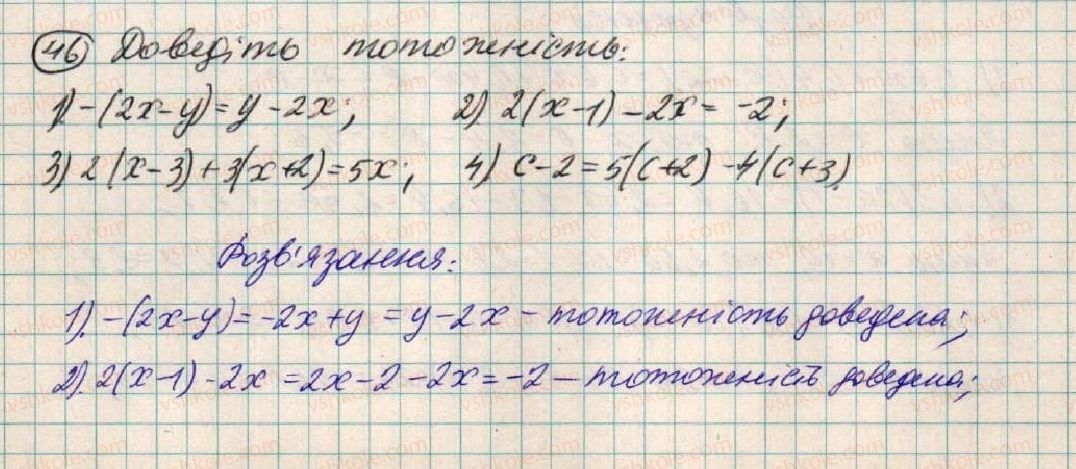 46 Доведіть тотожність:
1) -(2x-y)=y-2x; 2) 2(x-1)-2x=-2;
3) 2(x-3)+3(x+2)=5x; 4) c-2=5(c+2)-4(c+3).
Розв'язання:
1). -(2x-y)=-2x+y=y-2x - тотожність доведена;
2). 2(x-1)-2x=2x-2-2x=-2 - тотожність доведена;